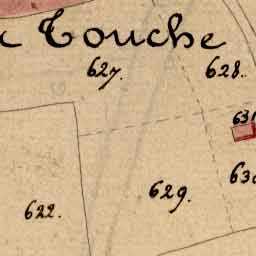 Touche
627.
628.
631
629.
622.